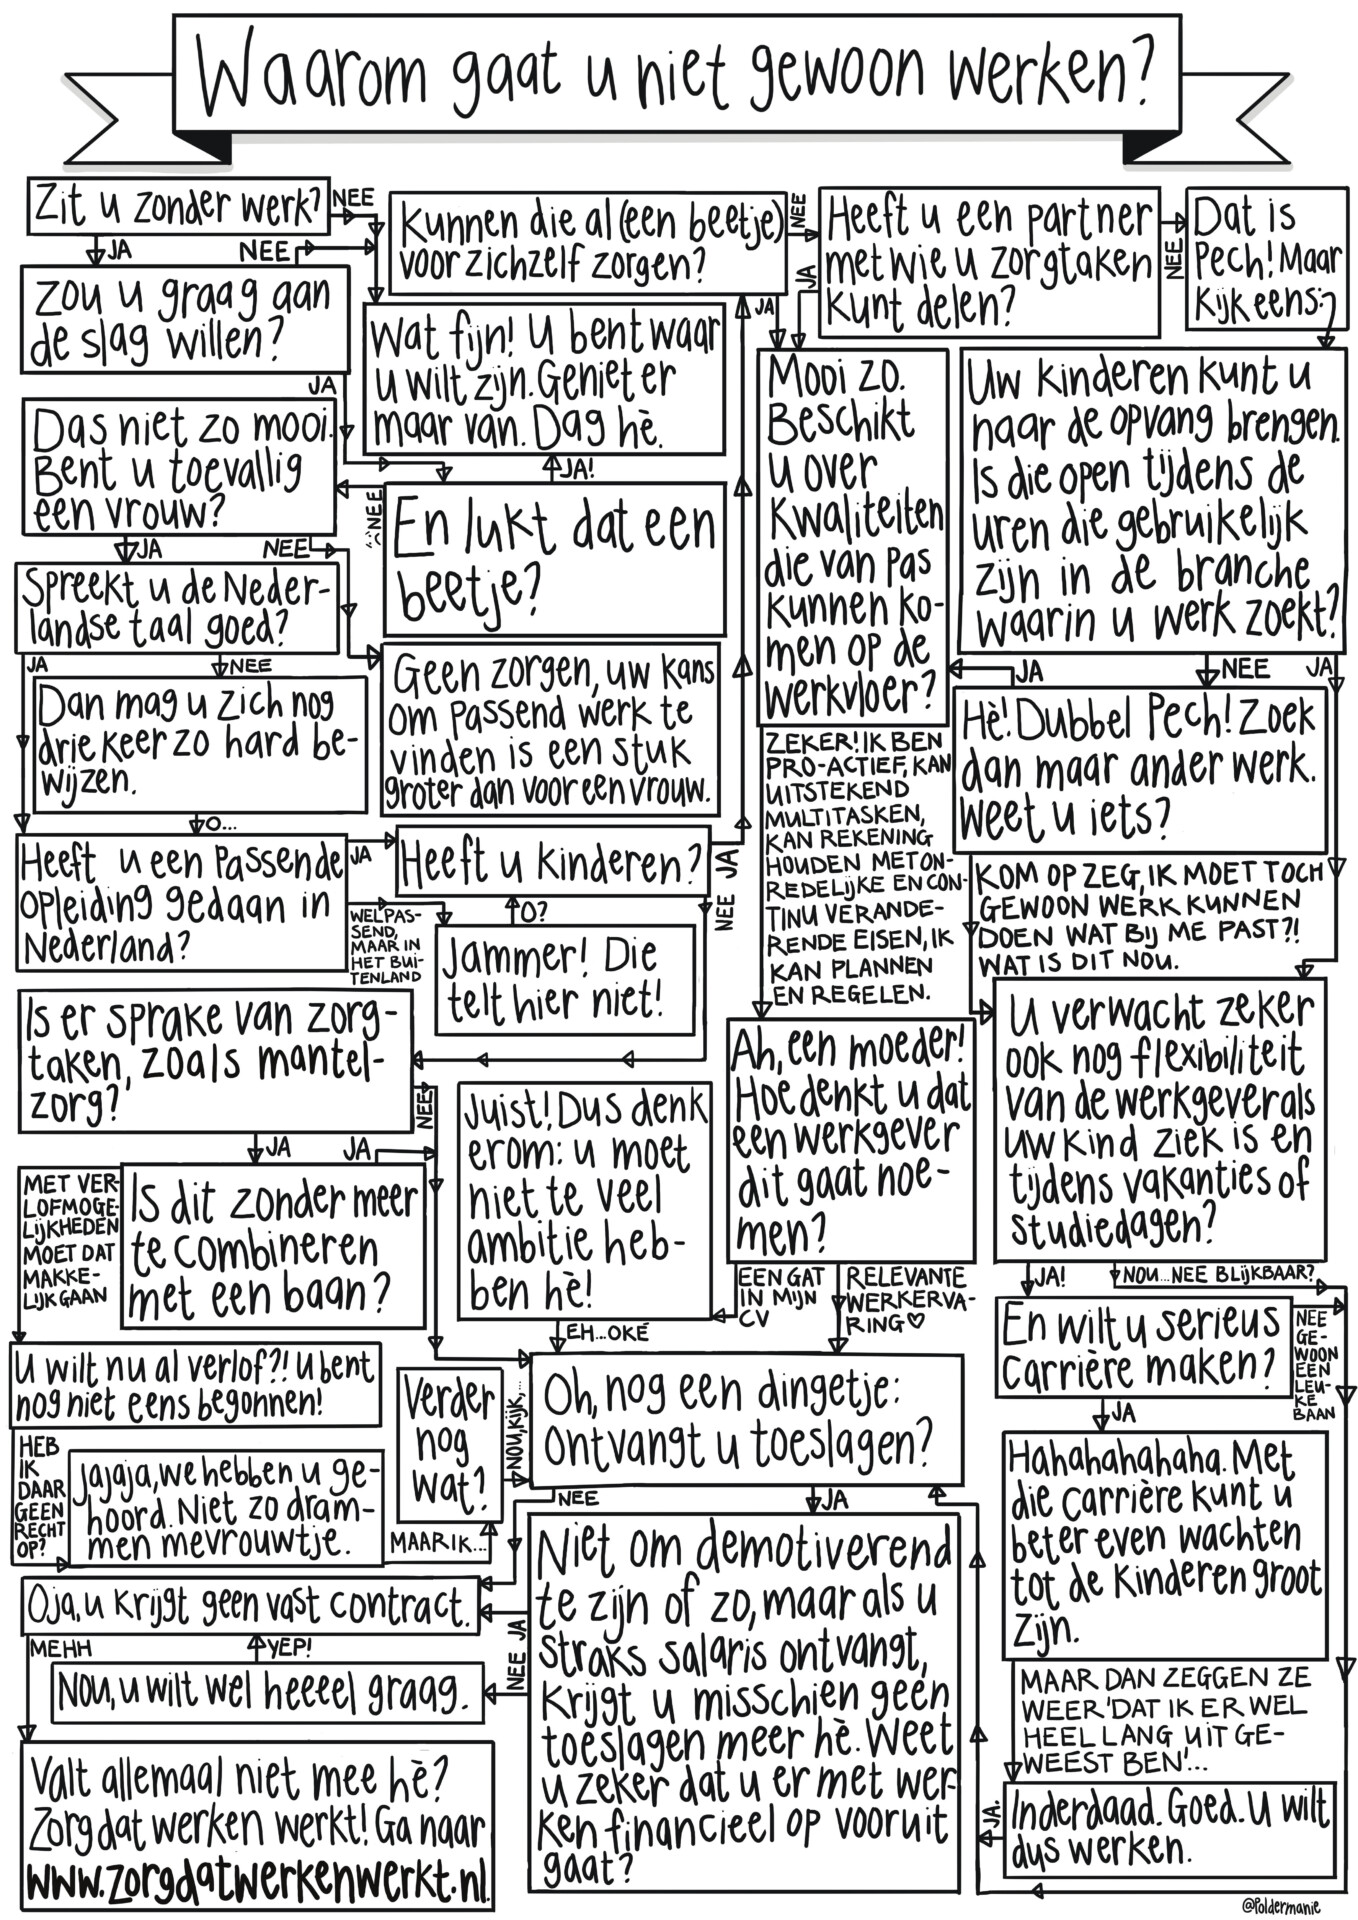 Waarom gaat u niet gewoon werken?
Zit u zonder werk?
NEE
JA
NEE
Zou u graag aan
de slag willen?
JA
Kunnen die al (een beetje)
voor zichzelf zorgen?
NEE
JA
Heeft u een partner
met wie u zorgtaken
kunt delen?
JA
NEE
Dat is
Pech! Maar
kijk eens:
Wat fijn! U bent waar
u wilt zijn. Geniet er
maar van. Dag hè.
JA!
Das niet zo mooi.
Bent u toevallig
een vrouw?
JA
NEE
NEE
En lukt dat een
beetje?
Mooi zo.
Beschikt
u over
kwaliteiten
die van pas
kunnen ko-
men op de
werkvloer?
Uw kinderen kunt u
naar de opvang brengen.
Is die open tijdens de
uren die gebruikelijk
zijn in de branche
waarin u werk zoekt?
JA
NEE
JA
Spreekt u de Neder-
landse taal goed?
JA
NEE
Dan mag u zich nog
drie keer zo hard be-
wijzen.
O...
Geen zorgen, uw kans
om passend werk te
vinden is een stuk
groter dan voor een vrouw.
Hè! Dubbel Pech! Zoek
dan maar ander werk.
Weet u iets?
ZEKER! IK BEN
PRO-ACTIEF, KAN
UITSTEKEND
MULTITASKEN,
KAN REKENING
HOUDEN MET ON-
REDELIJKE EN CON-
TINU VERANDE-
RENDE EISEN, IK
KAN PLANNEN
EN REGELEN.
KOM OP ZEG, IK MOET TOCH
GEWOON WERK KUNNEN
DOEN WAT BIJ ME PAST?!
WAT IS DIT NOU.
Heeft u een passende
opleiding gedaan in
Nederland?
JA
WEL PAS-
SEND,
MAAR IN
HET BUI-
TENLAND
Heeft u kinderen?
JA
NEE
O?
Jammer! Die
telt hier niet!
Is er sprake van zorg-
taken, zoals mantel-
zorg?
NEE
JA
JA
Is dit zonder meer
te combineren
met een baan?
MET VER-
LOFMOGE-
LIJKHEDEN
MOET DAT
MAKKE-
LIJK GAAN
Juist! Dus denk
erom: u moet
niet te veel
ambitie heb-
ben hè!
EH...OKÉ
Ah, een moeder!
Hoe denkt u dat
een werkgever
dit gaat noe-
men?
EEN GAT
IN MIJN
CV
RELEVANTE
WERKERVA-
RING♡
U verwacht zeker
ook nog flexibiliteit
van de werkgever als
uw kind ziek is en
tijdens vakanties of
studiedagen?
JA!
NOU...NEE BLIJKBAAR?
U wilt nu al verlof?! U bent
nog niet eens begonnen!
HEB
IK
DAAR
GEEN
RECHT
OP?
Jajaja, we hebben u ge-
hoord. Niet zo dram-
men mevrouwtje.
MAAR IK...
Verder
nog
wat?
NOU, KIJK,...
Oh, nog een dingetje:
Ontvangt u toeslagen?
NEE
JA
En wilt u serieus
carrière maken?
JA
NEE
GE-
WOON
EEN
LEU-
KE
BAAN
Hahahahahaha. Met
die carrière kunt u
beter even wachten
tot de kinderen groot
zijn.
MAAR DAN ZEGGEN ZE
WEER 'DAT IK ER WEL
HEEL LANG UIT GE-
WEEST BEN'...
Inderdaad. Goed. U wilt
dus werken.
JA.
Niet om demotiverend
te zijn of zo, maar als u
straks salaris ontvangt,
krijgt u misschien geen
toeslagen meer hè. Weet
u zeker dat u er met wer-
ken financieel op vooruit
gaat?
JA
NEE
Oja, u krijgt geen vast contract.
MEHH
YEP!
Nou, u wilt wel heeeel graag.
Valt allemaal niet mee hè?
Zorg dat werken werkt! Ga naar
www.zorgdatwerkenwerkt.nl.
@Poldermanie